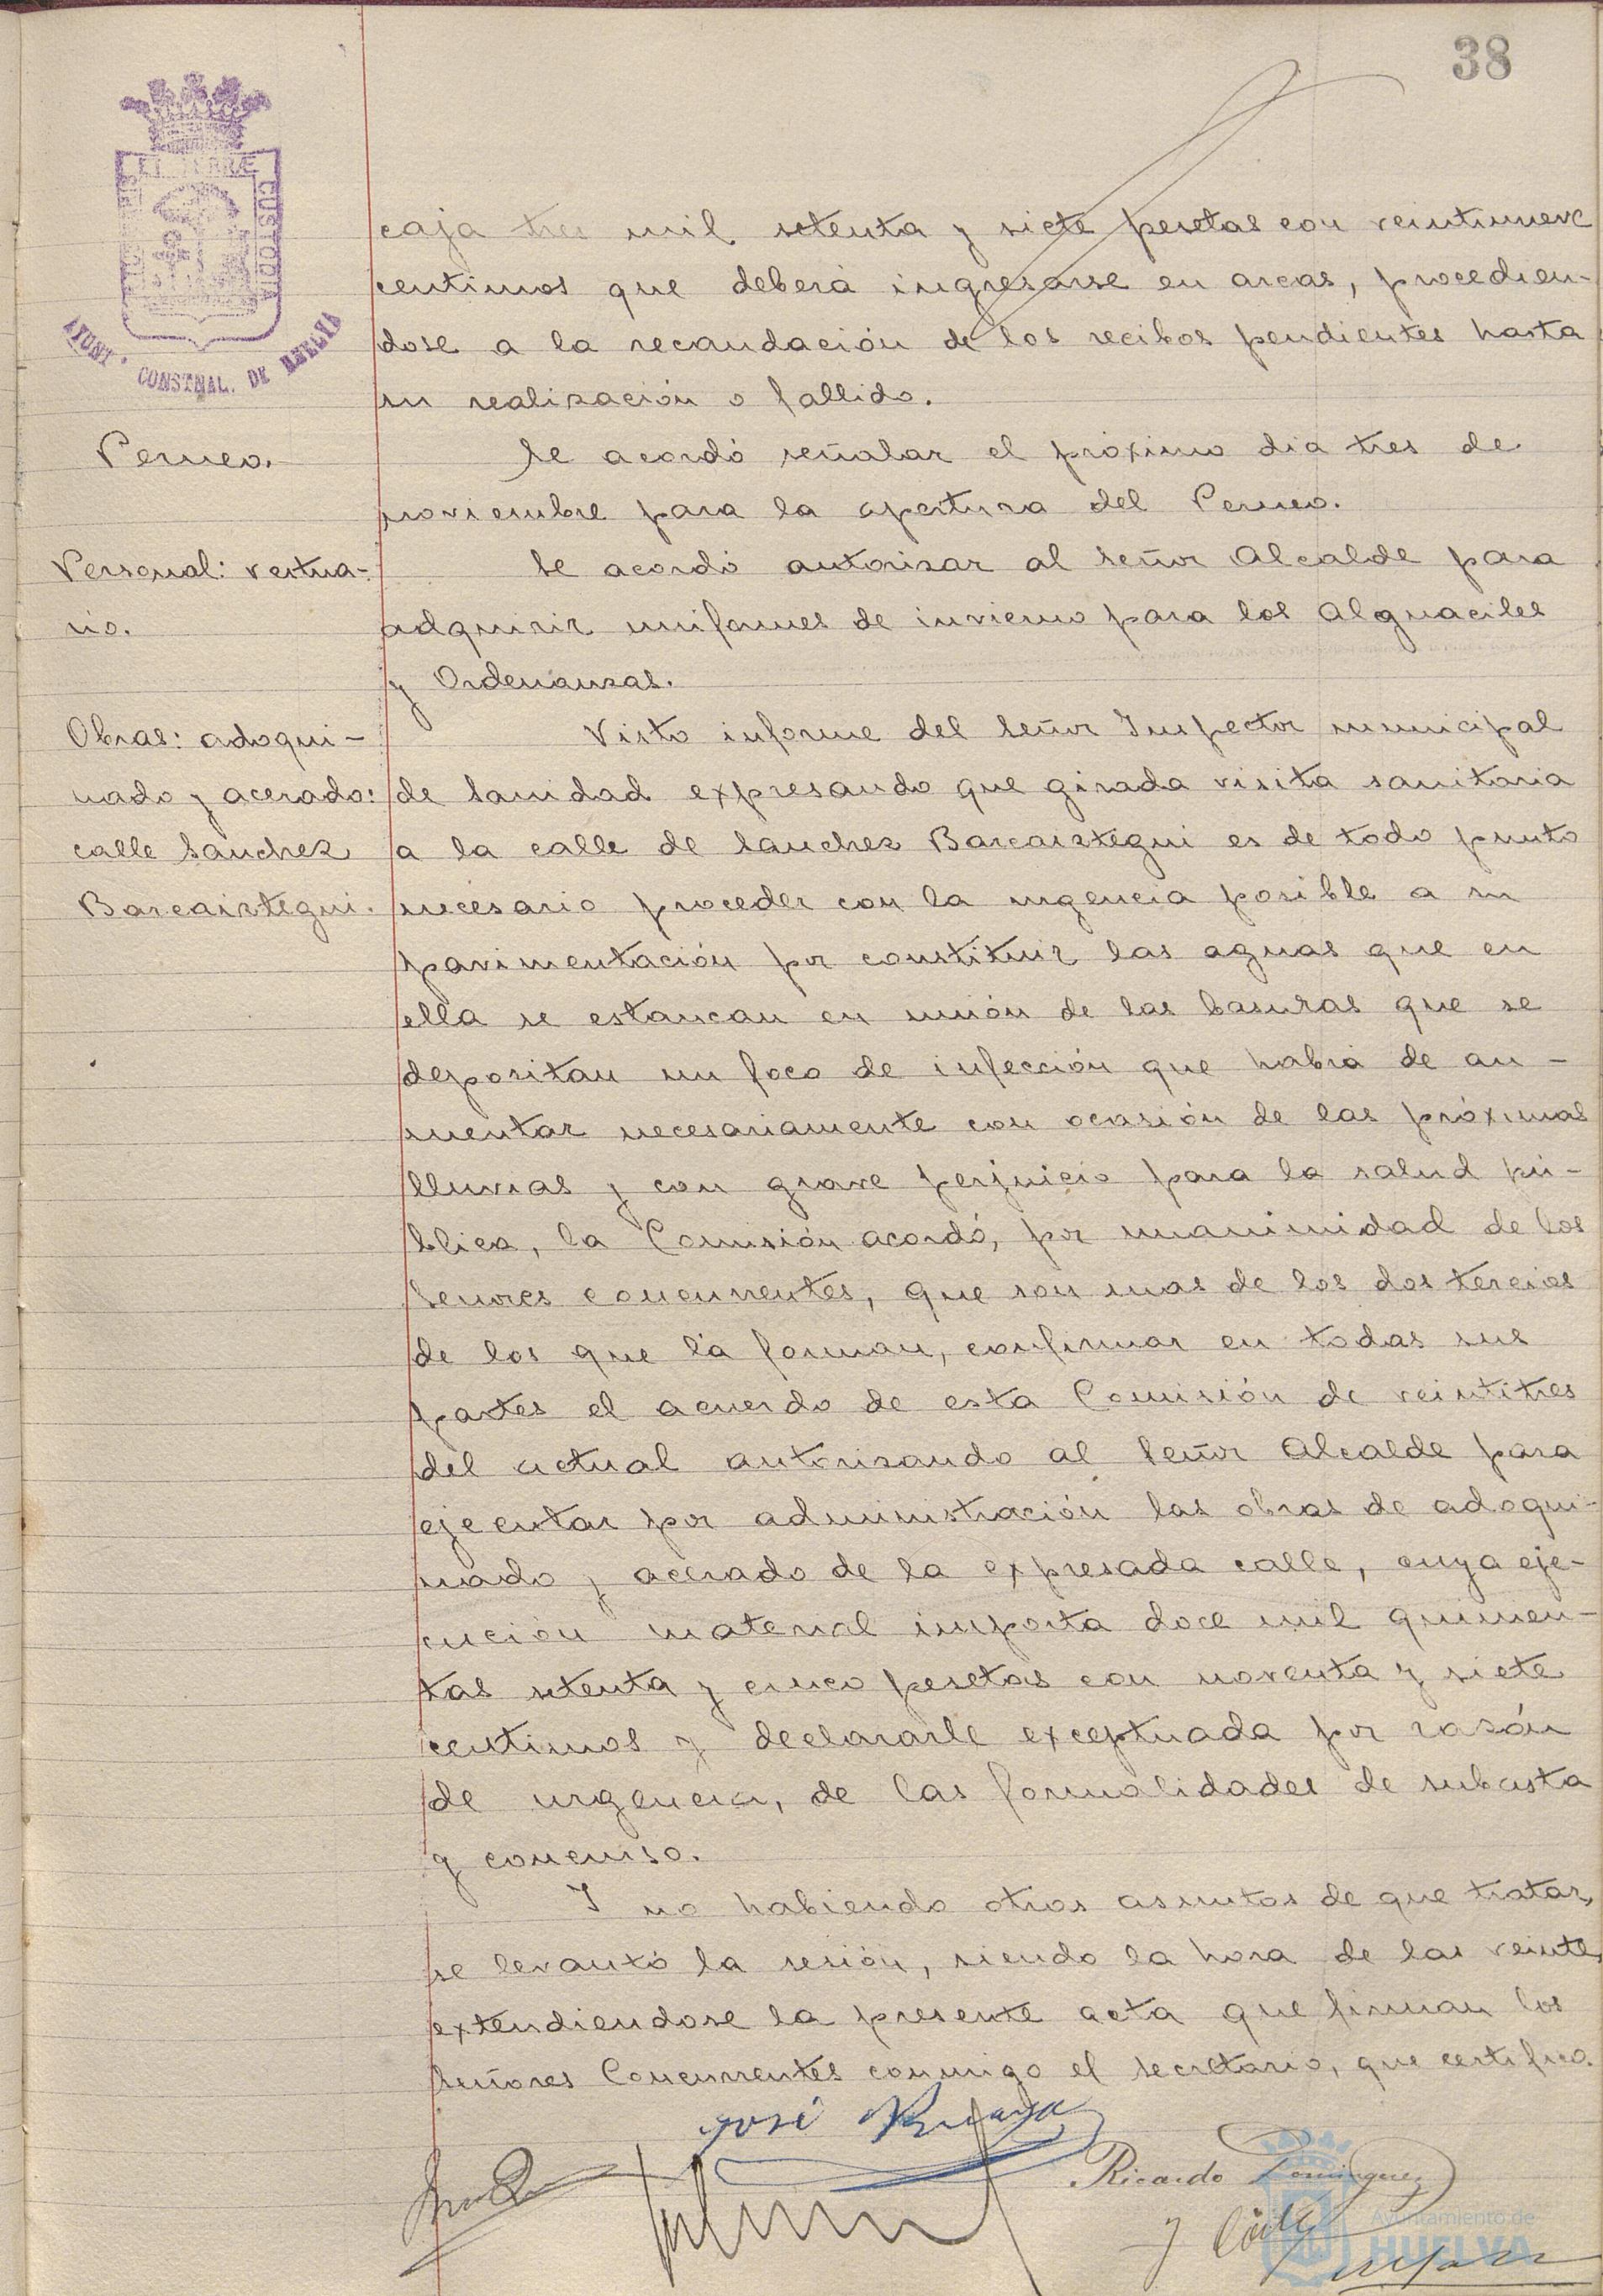 38
PORTUS MARIS ET TERRÆ CUSTODIA
AYUNT° CONSTNAL. DE HUELVA
caja tres mil setenta y siete pesetas con veintinueve
centimos que deberá ingresarse en arcas, procedien-
dose a la recaudación de los recibos pendientes hasta
su realización o fallido.
Perneo.
Se acordó señalar el próximo dia tres de
noviembre para la apertura del Perneo.
Personal: vestua-
rio.
Se acordó autorizar al señor Alcalde para
adquirir uniformes de invierno para los Alguaciles
y Ordenanzas.
Obras: adoqui-
nado y acerado:
calle Sanchez
Barcaiztegui.
Visto informe del señor Inspector municipal
de Sanidad expresando que girada visita sanitaria
a la calle de Sanchez Barcaiztegui es de todo punto
necesario proceder con la urgencia posible a su
pavimentación por constituir las aguas que en
ella se estancan en unión de las basuras que se
depositan un foco de infección que habrá de au-
mentar necesariamente con ocasión de las próximas
lluvias y con grave perjuicio para la salud pú-
blica, la Comisión acordó, por unanimidad de los
señores concurrentes, que son mas de los dos tercios
de los que la forman, confirmar en todas sus
partes el acuerdo de esta Comisión de veintitres
del actual autorizando al señor Alcalde para
ejecutar por administración las obras de adoqui-
nado y acerado de la expresada calle, cuya eje-
cución material importa doce mil quinien-
tas setenta y cinco pesetas con noventa y siete
centimos y declararle exceptuada por razón
de urgencia, de las formalidades de subasta
y concurso.
Y no habiendo otros asuntos de que tratar,
se levantó la sesión, siendo la hora de las veinte,
extendiendose la presente acta que firman los
señores Concurrentes conmigo el secretario, que certifico.
José
Ricardo Dominguez
Ayuntamiento de
HUELVA